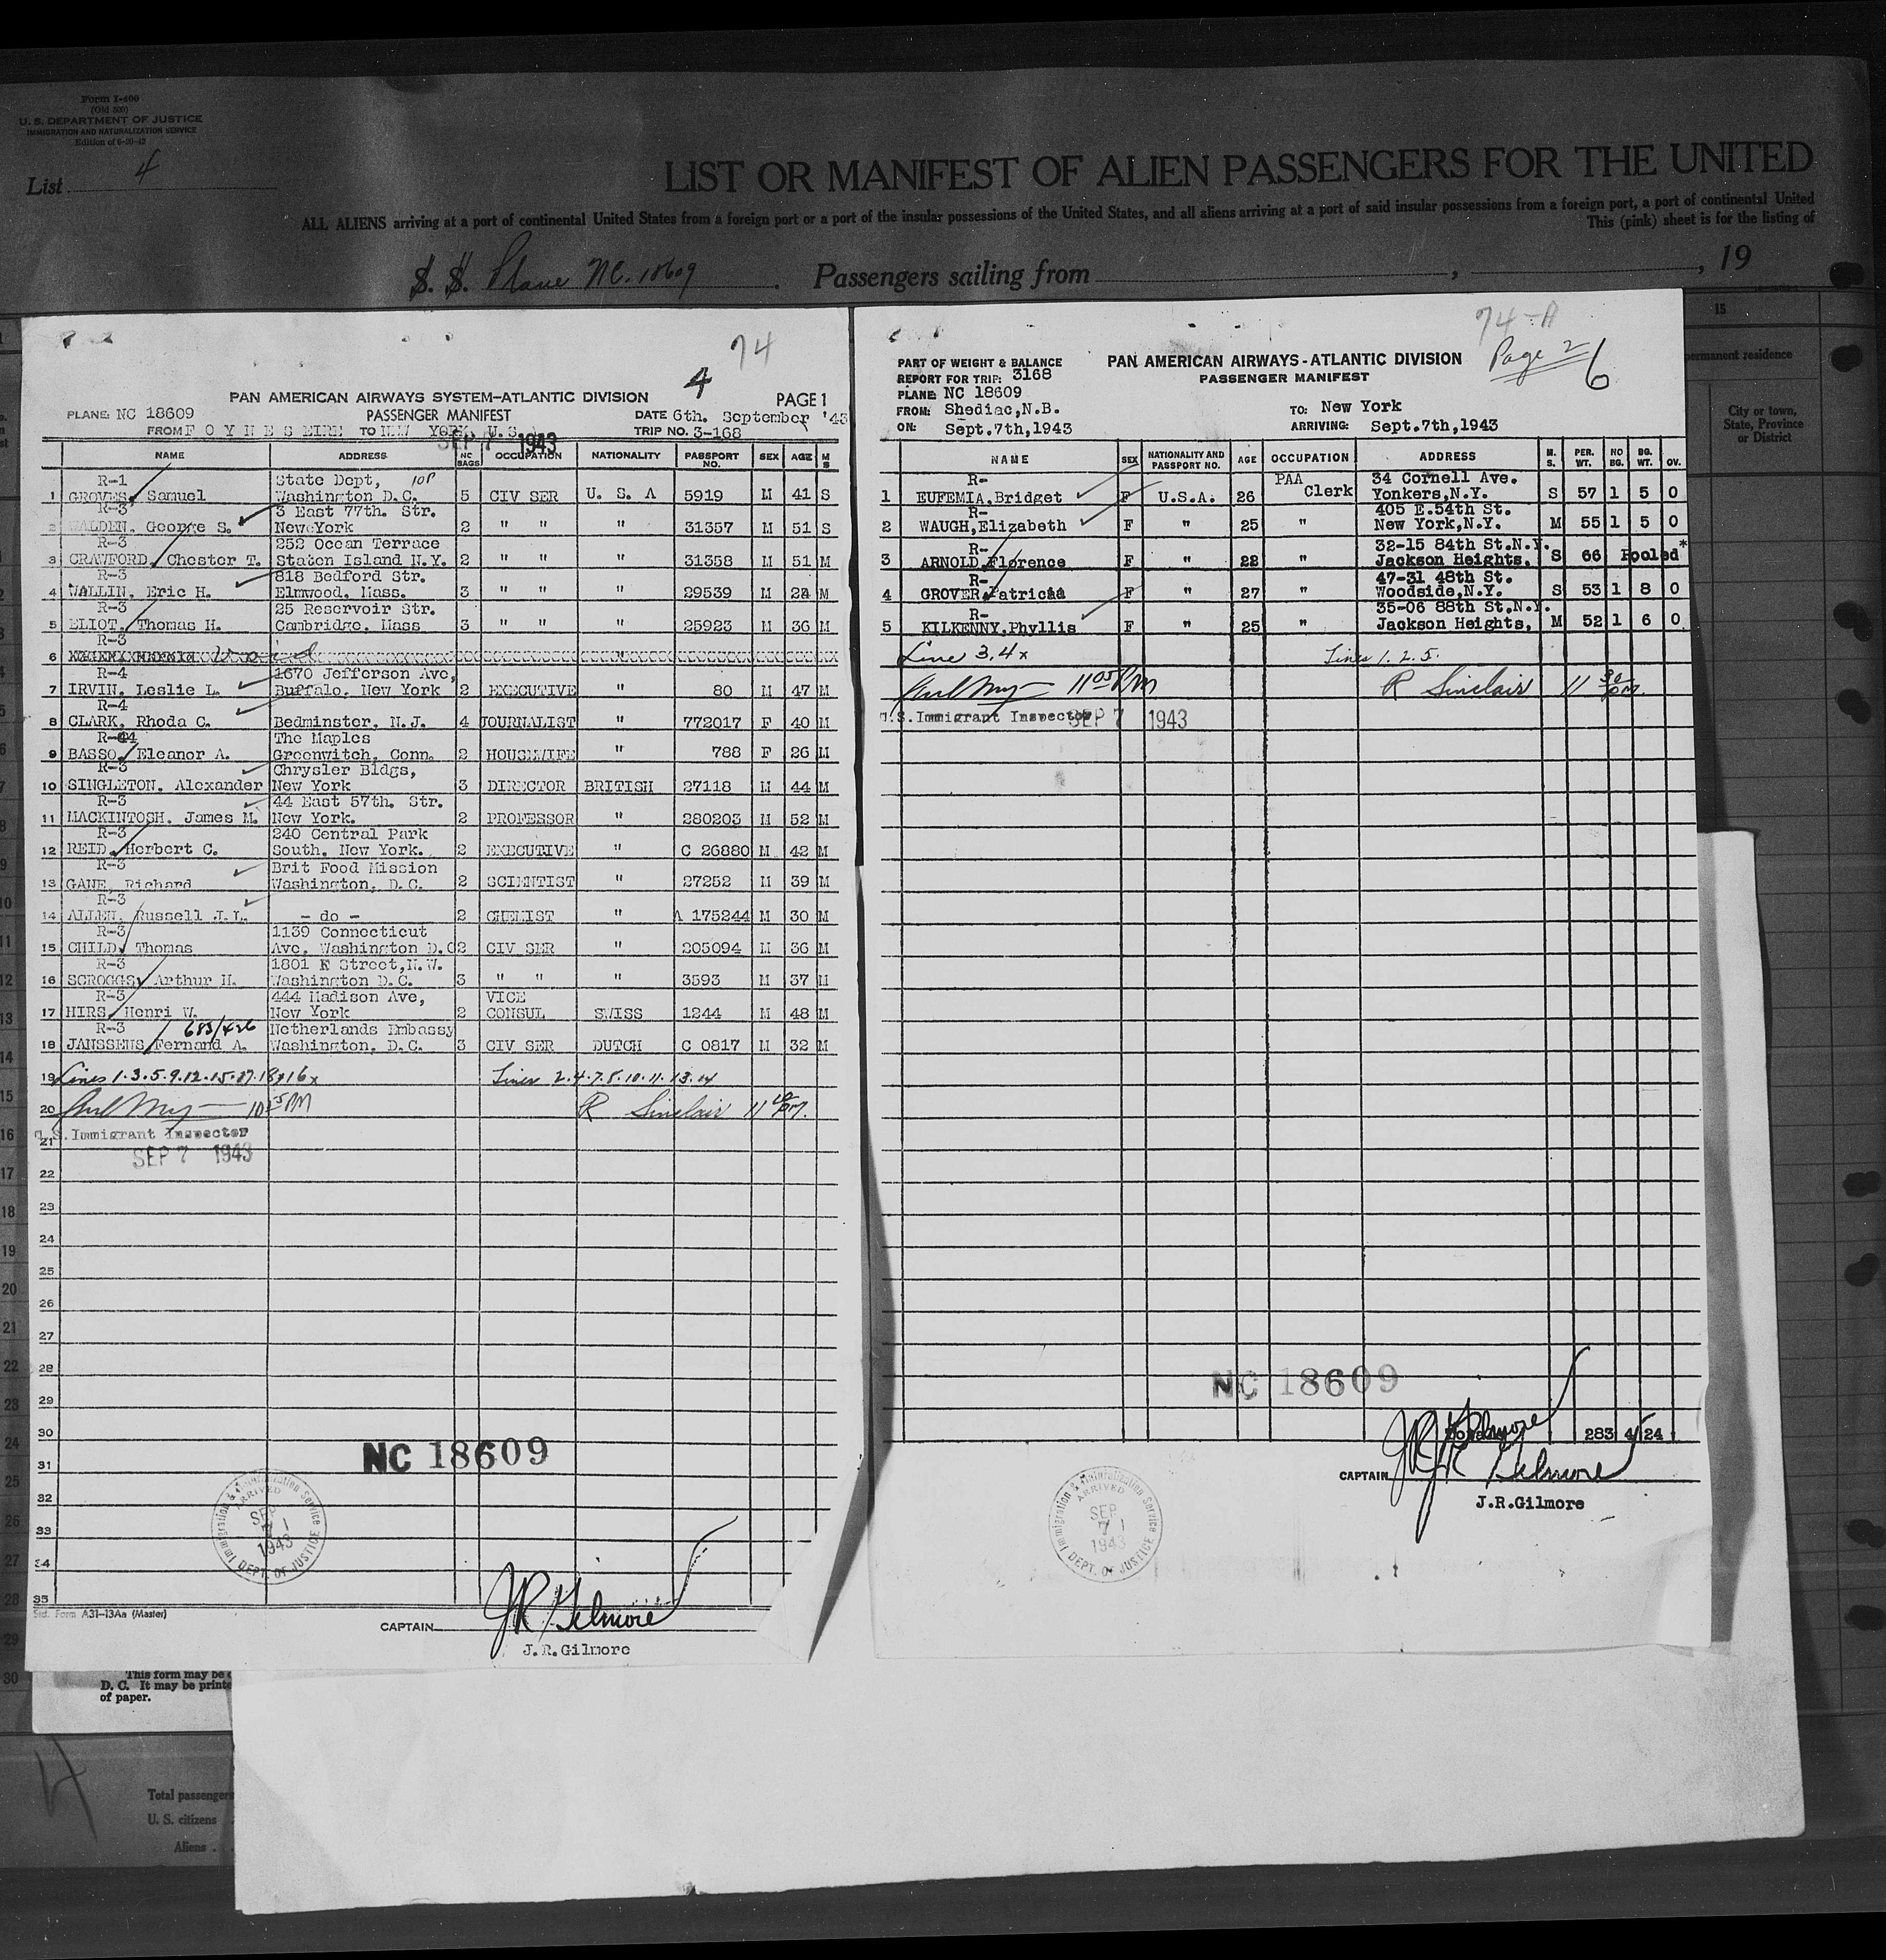 Form I-400
(Old 500)
U. S. DEPARTMENT OF JUSTICE
IMMIGRATION AND NATURALIZATION SERVICE
Edition of 6-20-42
List 4
LIST OR MANIFEST OF ALIEN PASSENGERS FOR THE UNITED
ALL ALIENS arriving at a port of continental United States from a foreign port or a port of the insular possessions of the United States, and all aliens arriving at a port of said insular possessions from a foreign port, a port of continental United
This (pink) sheet is for the listing of
S. S. Plane NC. 18609. Passengers sailing from , , 19
74
4
PAN AMERICAN AIRWAYS SYSTEM-ATLANTIC DIVISION PAGE 1
PLANE: NC 18609 PASSENGER MANIFEST DATE 6th. September '43
FROM F O Y N E S EIRE TO NEW YORK, U.S. TRIP NO. 3-168
SEP 7 1943
NAME ADDRESS NC BAGS OCCUPATION NATIONALITY PASSPORT NO. SEX AGE M S
R-1 State Dept, 10P
1 GROVES, Samuel Washington D.C. 5 CIV SER U. S. A 5919 M 41 S
R-3 3 East 77th. Str.
2 WALDEN, George S. New York 2 " " " 31357 M 51 S
R-3 252 Ocean Terrace
3 CRAWFORD, Chester T. Staten Island N.Y. 2 " " " 31358 M 51 M
R-3 818 Bedford Str.
4 WALLIN, Eric H. Elmwood, Mass. 3 " " " 29539 M 24 M
R-3 25 Reservoir Str.
5 ELIOT, Thomas H. Cambridge, Mass 3 " " " 25923 M 36 M
R-3
6 Void "
R-4 1670 Jefferson Ave,
7 IRVIN, Leslie L. Buffalo, New York 2 EXECUTIVE " 80 M 47 M
R-4
8 CLARK, Rhoda C. Bedminster, N.J. 4 JOURNALIST " 772017 F 40 M
R-44 The Maples
9 BASSO, Eleanor A. Greenwitch, Conn. 2 HOUSEWIFE " 788 F 26 M
R-3 Chrysler Bldgs,
10 SINGLETON, Alexander New York 3 DIRECTOR BRITISH 27118 M 44 M
R-3 44 East 57th. Str.
11 MACKINTOSH, James M. New York. 2 PROFESSOR " 280203 M 52 M
R-3 240 Central Park
12 REID, Herbert C. South, New York. 2 EXECUTIVE " C 26880 M 42 M
R-3 Brit Food Mission
13 GANE, Richard Washington, D.C. 2 SCIENTIST " 27252 M 39 M
R-3
14 ALLEN, Russell J.L. - do - 2 CHEMIST " A 175244 M 30 M
R-3 1139 Connecticut
15 CHILD, Thomas Ave, Washington D.C 2 CIV SER " 205094 M 36 M
R-3 1801 K Street, N.W.
16 SCROGGS, Arthur H. Washington D.C. 3 " " " 3593 M 37 M
R-3 444 Madison Ave, VICE
17 HIRS, Henri W. New York 2 CONSUL SWISS 1244 M 48 M
R-3 683/426 Netherlands Embassy
18 JANSSENS, Fernand A. Washington, D.C. 3 CIV SER DUTCH C 0817 M 32 M
19 Lines 1.3.5.9.12.15.17.18+16x Lines 2.4.7.8.10.11.13.14
20 R Sinclair 11 PM.
21 U.S. Immigrant Inspector
SEP 7 1943
22
23
24
25
26
27
28
29
30
NC 18609
31
32
33
34
35
Immigration & Naturalization Service
ARRIVED
SEP
7 1
1943
DEPT. OF JUSTICE
Std. Form A31-13Aa (Master)
CAPTAIN JR Gilmore
J.R.Gilmore
74-A
Page 2
6
PART OF WEIGHT & BALANCE PAN AMERICAN AIRWAYS-ATLANTIC DIVISION
REPORT FOR TRIP: 3168 PASSENGER MANIFEST
PLANE: NC 18609
FROM: Shediac,N.B. TO: New York
ON: Sept.7th,1943 ARRIVING: Sept.7th,1943
NAME SEX NATIONALITY AND PASSPORT NO. AGE OCCUPATION ADDRESS M. S. PER. WT. NO BG. BG. WT. OV.
R- PAA 34 Cornell Ave.
1 EUFEMIA,Bridget F U.S.A. 26 Clerk Yonkers,N.Y. S 57 1 5 0
R- 405 E.54th St.
2 WAUGH,Elizabeth F " 25 " New York,N.Y. M 55 1 5 0
R- 32-15 84th St.N.Y.
3 ARNOLD,Florence F " 22 " Jackson Heights, S 66 Pooled*
R- 47-31 48th St.
4 GROVER,Patricia F " 27 " Woodside,N.Y. S 53 1 8 0
R- 35-06 88th St,N.Y.
5 KILKENNY,Phyllis F " 25 " Jackson Heights, M 52 1 6 0
Line 3,4x Lines 1.2.5.
11 05 PM R Sinclair 11 30 PM.
U.S. Immigrant Inspector SEP 7 1943
NC 18609
283 4 24
CAPTAIN JR Gilmore
J.R.Gilmore
Immigration & Naturalization Service
ARRIVED
SEP
7 1
1943
DEPT. OF JUSTICE
15
permanent residence
City or town,
State, Province
or District
This form may be
D. C. It may be printe
of paper.
4
Total passengers
U. S. citizens
Aliens